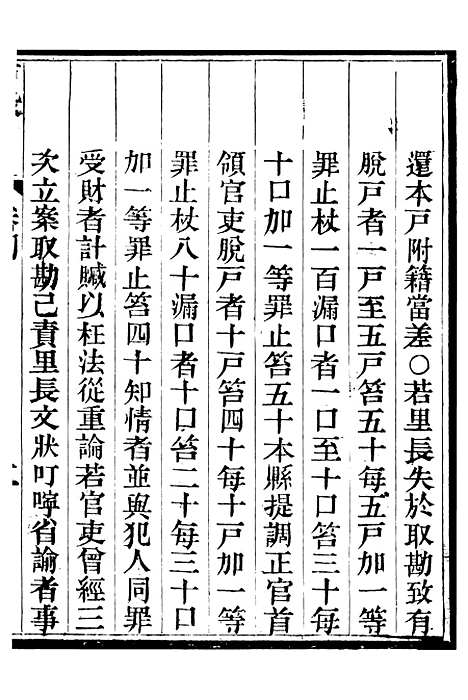 還本戸附籍當差○若里長失於取勘致有
脫戸者一戸至五戸笞五十每五戸加一等
罪止杖一百漏口者一口至十口笞三十每
十口加一等罪止笞五十本縣提調正官首
領官吏脫戸者十戸笞四十每十戸加一等
罪止杖八十漏口者十口笞二十每三十口
加一等罪止笞四十知情者並與犯人同罪
受財者計贓以枉法從重論若官吏曾經三
次立案取勘己責里長文狀叮嚀省諭者事